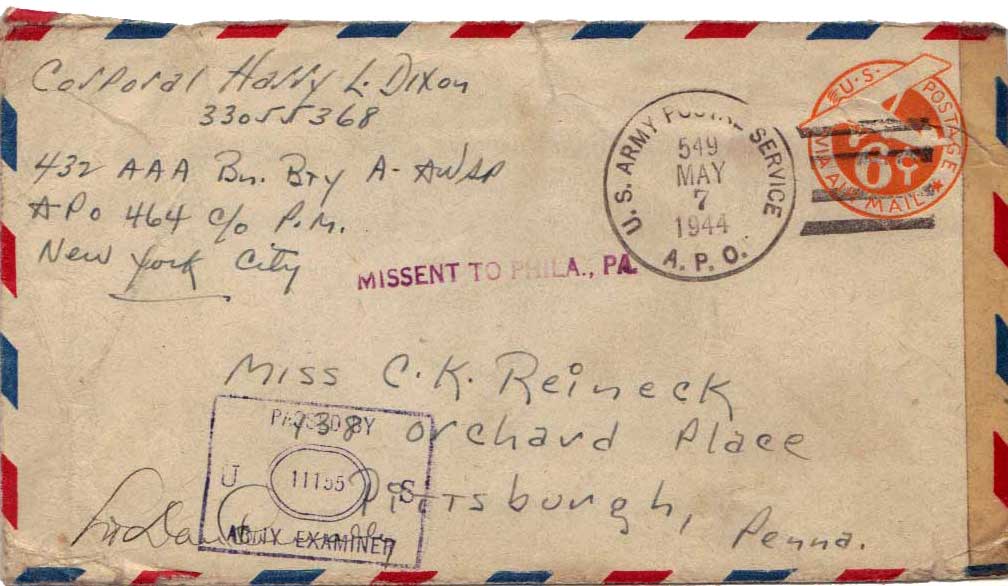 Corporal Harry L. Dixon
33055368
432 AAA Bn. Bty A-AWSP
APO 464 c/o P.M.
New York City
U. S. ARMY POSTAL SERVICE
549
MAY
7
1944
A. P. O.
U.S. POSTAGE
6¢
VIA AIR MAIL
MISSENT TO PHILA., PA.
Miss C. K. Reineck
738 Orchard Place
Pittsburgh,
Penna.
PASSED BY
U 11155 S
ARMY EXAMINER